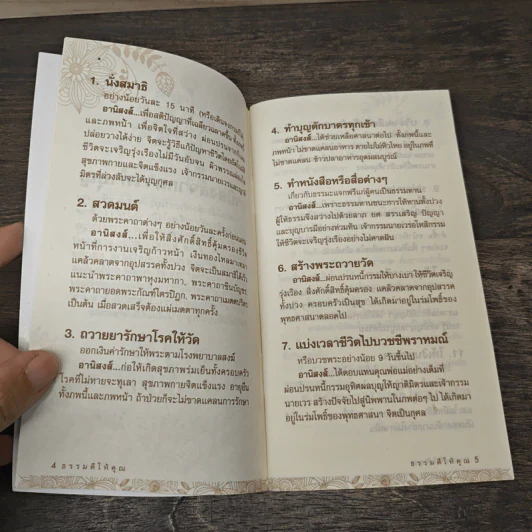 1. นั่งสมาธิ
อย่างน้อยวันละ 15 นาที (หรือเดินจงกรมก็ได้)
อานิสงส์...เพื่อสติปัญญาที่เฉลียวฉลาดขึ้น ทั้งภพนี้
และภพหน้า เพื่อจิตใจที่สว่าง ผ่อนปรนจากกิเลส
ปล่อยวางได้ง่าย จิตจะรู้วิธีแก้ปัญหาชีวิตโดยอัตโนมัติ
ชีวิตจะเจริญรุ่งเรืองไม่มีวันอับจน ผิวพรรณผ่องใส
สุขภาพกายและจิตแข็งแรง เจ้ากรรมนายเวรและญาติ
มิตรที่ล่วงลับจะได้บุญกุศล
2. สวดมนต์
ด้วยพระคาถาต่างๆ อย่างน้อยวันละครั้งก่อนนอน
อานิสงส์...เพื่อให้สิ่งศักดิ์สิทธิ์คุ้มครองชีวิต
หน้าที่การงานเจริญก้าวหน้า เงินทองไหลมาเทมา
แคล้วคลาดจากอุปสรรคทั้งปวง จิตจะเป็นสมาธิได้เร็ว
แนะนำพระคาถาพาหุงมหากา, พระคาถาชินบัญชร,
พระคาถายอดพระกัณฑ์ไตรปิฎก, พระคาถาเมตตาปริตร
เป็นต้น เมื่อสวดเสร็จต้องแผ่เมตตาทุกครั้ง
3. ถวายยารักษาโรคให้วัด
ออกเงินค่ารักษาให้พระตามโรงพยาบาลสงฆ์
อานิสงส์...ก่อให้เกิดสุขภาพร่มเย็นทั้งครอบครัว
โรคที่ไม่หายจะทุเลา สุขภาพกายจิตแข็งแรง อายุยืน
ทั้งภพนี้และภพหน้า ถ้าป่วยก็จะไม่ขาดแคลนการรักษา
4 ธรรมดีให้คุณ
4. ทำบุญตักบาตรทุกเช้า
อานิสงส์...ได้ช่วยเหลือศาสนาต่อไป ทั้งภพนี้และ
ภพหน้า ไม่ขาดแคลนอาหาร ตายไปไม่หิวโหย อยู่ในภพที่
ไม่ขาดแคลน ข้าวปลาอาหารอุดมสมบูรณ์
5. ทำหนังสือหรือสื่อต่างๆ
เกี่ยวกับธรรมะแจกฟรีแก่ผู้คนเป็นธรรมทาน
อานิสงส์...เพราะธรรมทานชนะการให้ทานทั้งปวง
ผู้ให้ธรรมจึงสว่างไปด้วยลาภ ยศ สรรเสริญ ปัญญา
และบุญบารมีอย่างท่วมท้น เจ้ากรรมนายเวรอโหสิกรรม
ให้ชีวิตจะเจริญรุ่งเรืองอย่างไม่คาดฝัน
6. สร้างพระถวายวัด
อานิสงส์...ผ่อนปรนหนี้กรรมให้บางเบา ให้ชีวิตเจริญ
รุ่งเรือง สิ่งศักดิ์สิทธิ์คุ้มครอง แคล้วคลาดจากอุปสรรค
ทั้งปวง ครอบครัวเป็นสุข ได้เกิดมาอยู่ในร่มโพธิ์ของ
พุทธศาสนาตลอดไป
7. แบ่งเวลาชีวิตไปบวชชีพราหมณ์
หรือบวชพระอย่างน้อย 9 วันขึ้นไป
อานิสงส์...ได้ตอบแทนคุณพ่อแม่อย่างเต็มที่
ผ่อนปรนหนี้กรรมอุทิศผลบุญให้ญาติมิตรและเจ้ากรรม
นายเวร สร้างปัจจัยไปสู่นิพพานในภพต่อๆ ไป ได้เกิดมา
อยู่ในร่มโพธิ์ของพุทธศาสนา จิตเป็นกุศล
ธรรมดีให้คุณ 5